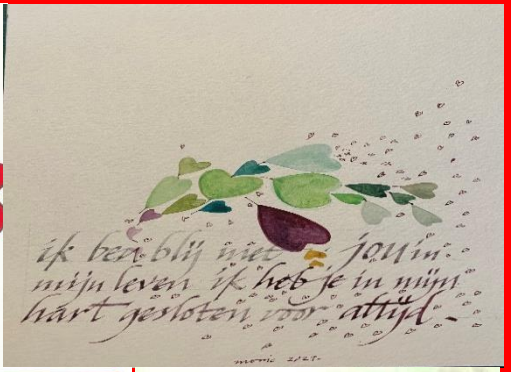 ik ben blij met jou in
mijn leven ik heb je in mijn
hart gesloten voor altijd -
monic 2021.